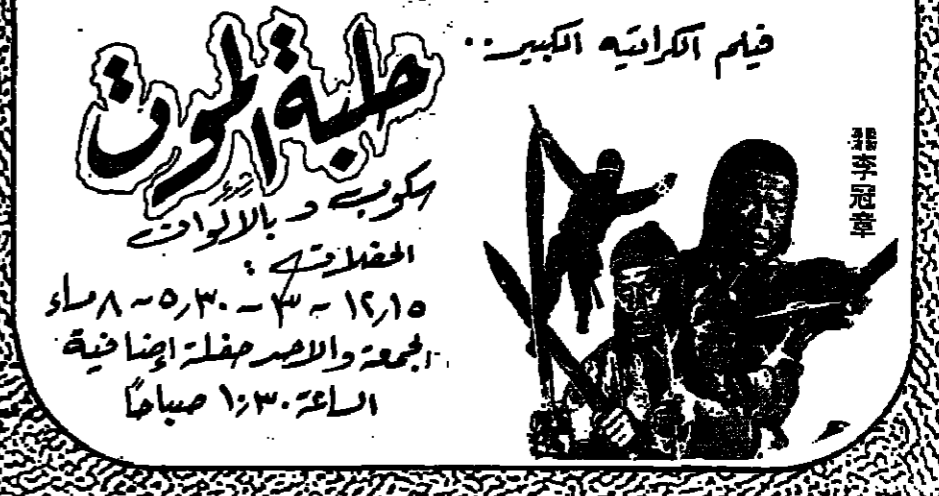 فيلم الكراتيه الكبير..
حلبة الموت
سكوب وبالالوان
الحفلات :
١٢,١٥ - ٣ - ٥,٣٠ - ٨ مساء
الجمعة والاحد حفلة إضافية
الساعة ١٠,٣٠ صباحاً
李冠章